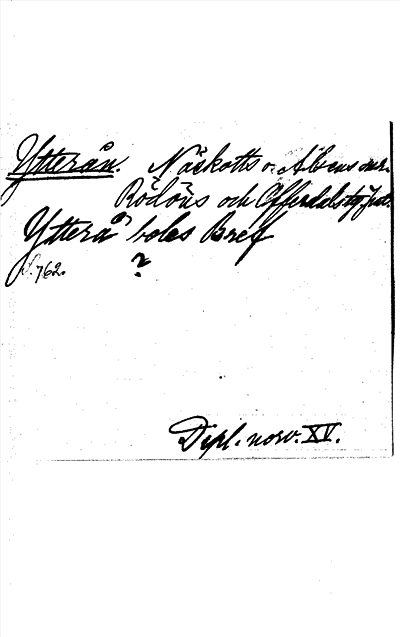 Ytterån. Näskotts o. Alsens snr.
Rödöns och Offerdals tg, Jtl.
Ytterå boles Bref
S. 762. ?
Dipl. norv. XV.